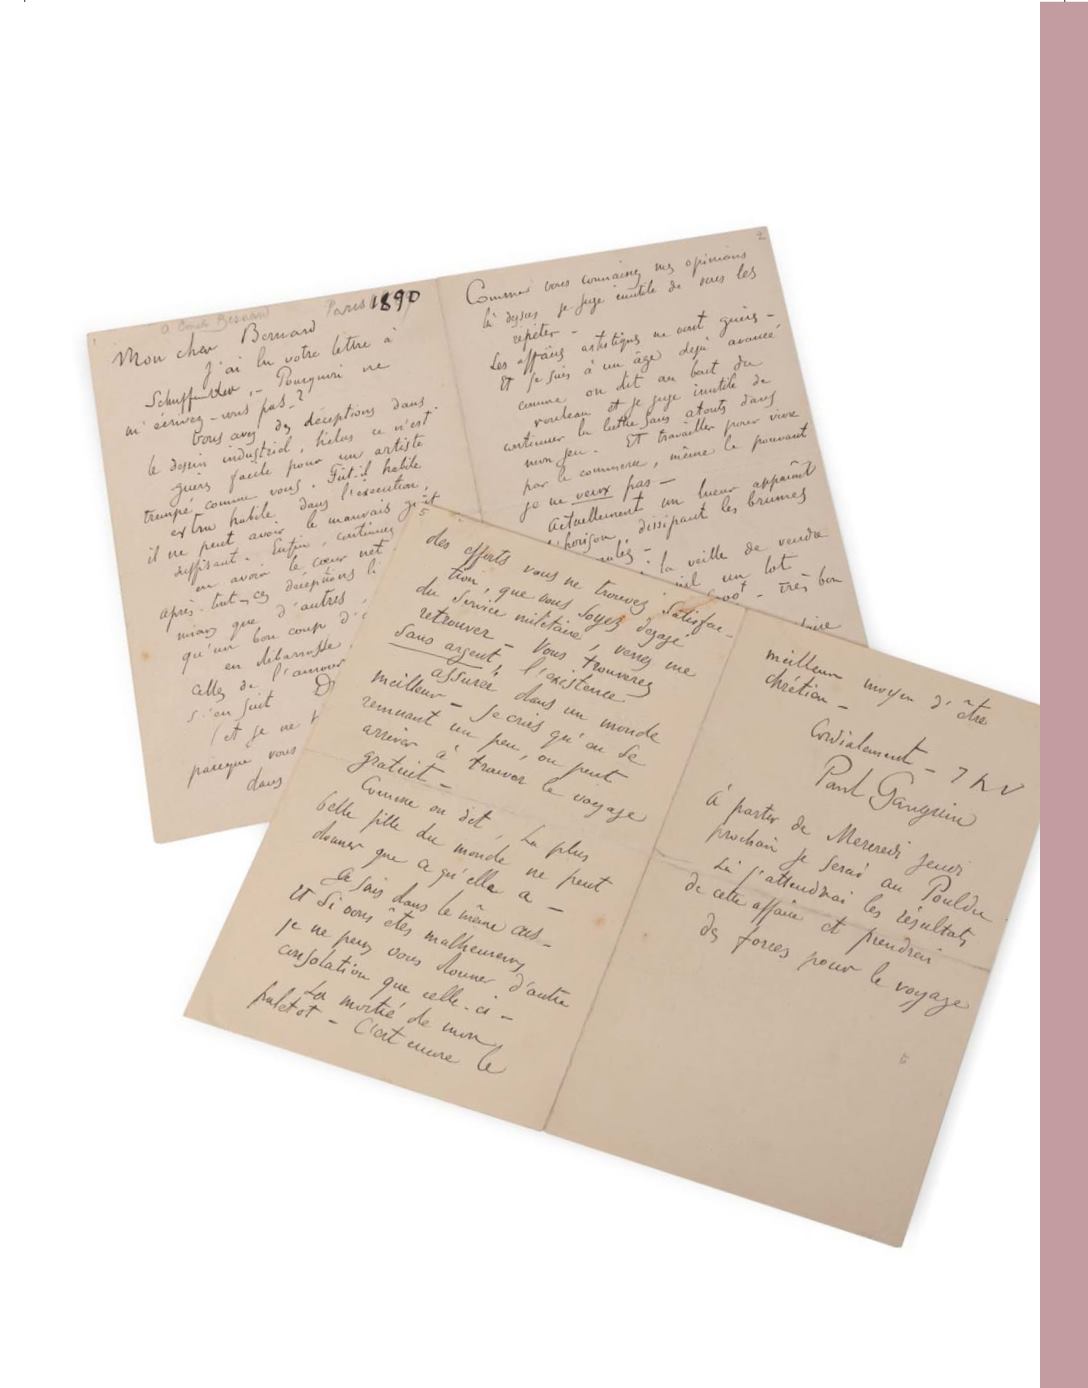 1
a Emile Bernard
Paris 1890
Mon cher Bernard
J'ai lu votre lettre à
Schuffenecker, – Pourquoi ne
m'écrivez-vous pas–?
Vous avez des déceptions dans
le dessin industriel, hélas ce n'est
guère facile pour un artiste
trempé comme vous. Fût-il habile
extra habile dans l'exécution,
il ne peut avoir le mauvais goût
suffisant. Enfin, continuez
en avoir le cœur net
après-tout, ces déceptions
mieux que d'autres,
qu'un bon coup d'
en débarrasse
celles de l'amour
s'en suit
(et je ne
parceque vous
dans
2
Comme vous connaissez mes opinions
là dessus je juge inutile de vous les
répéter –
Les affaires artistiques ne vont guère –
Et je suis à un âge déjà avancé
comme on dit au bout du
rouleau et je juge inutile de
continuer la lutte sans atouts dans
mon jeu. Et travailler pour vivre
par le commerce, même le pouvant
je ne veux pas –
Actuellement un lueur apparaît
horizon, dissipant les brumes
la veille de vendre
un lot
Très bon
5
des efforts vous ne trouvez satisfac–
tion, que vous soyez dégagé
du service militaire, venez me
retrouver – Vous trouverez
sans argent, l'existence
assurée dans un monde
meilleur – Je crois qu'en se
remuant un peu, on peut
arriver à trouver le voyage
gratuit –
Comme on dit, La plus
belle fille du monde ne peut
donner que ce qu'elle a –
Je suis dans le même cas –
Et si vous êtes malheureux,
je ne peux vous donner d'autre
consolation que celle-ci –
La moitié de mon
paletot – C'est encore le
meilleur moyen d'être
chrétien –
Cordialement –
Paul Gauguin
à partir de Mercredi jeudi
prochain je serai au Pouldu
Là j'attendrai les résultats
de cette affaire et prendrai
des forces pour le voyage